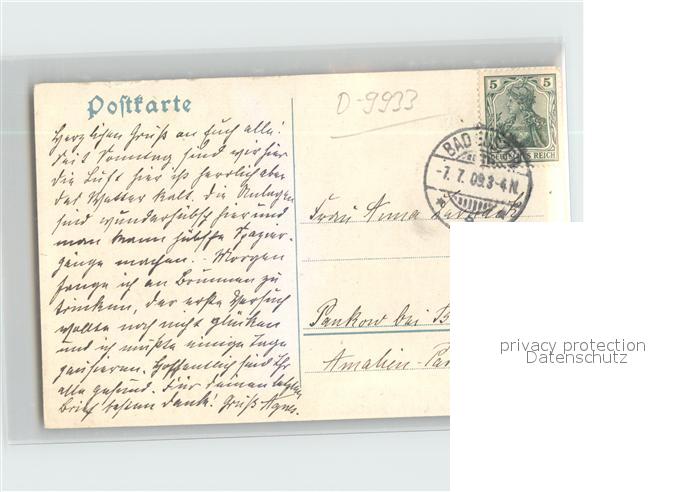 Postkarte
D-9933
5 5
DEUTSCHES REICH
BAD
-7. 7. 09. 3-4 N.
Herzlichen Gruß an Euch alle!
Seit Sonntag sind wir hier
die Luft hier ist herrlich aber
das Wetter kalt. Die Anlagen
sind wunderhübsch hier und
man kann hübsche Spazier-
gänge machen. - Morgen
fange ich an Brunnen zu
trinken, der erste Versuch
wollte noch nicht glücken
und ich mußte einige Tage
pausieren. Hoffentlich seid Ihr
alle gesund. Für deinen letzten
Brief besten Dank! Gruß Agnes.
Frau Anna
Pankow bei
Amalien-
privacy protection
Datenschutz